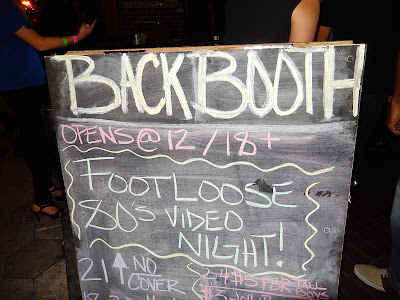 BACK BOOTH
OPENS@12/18+
FOOTLOOSE
80'S VIDEO
NIGHT!
21 ↑ NO
COVER
2-4 $5 PBR TALL
BOYS